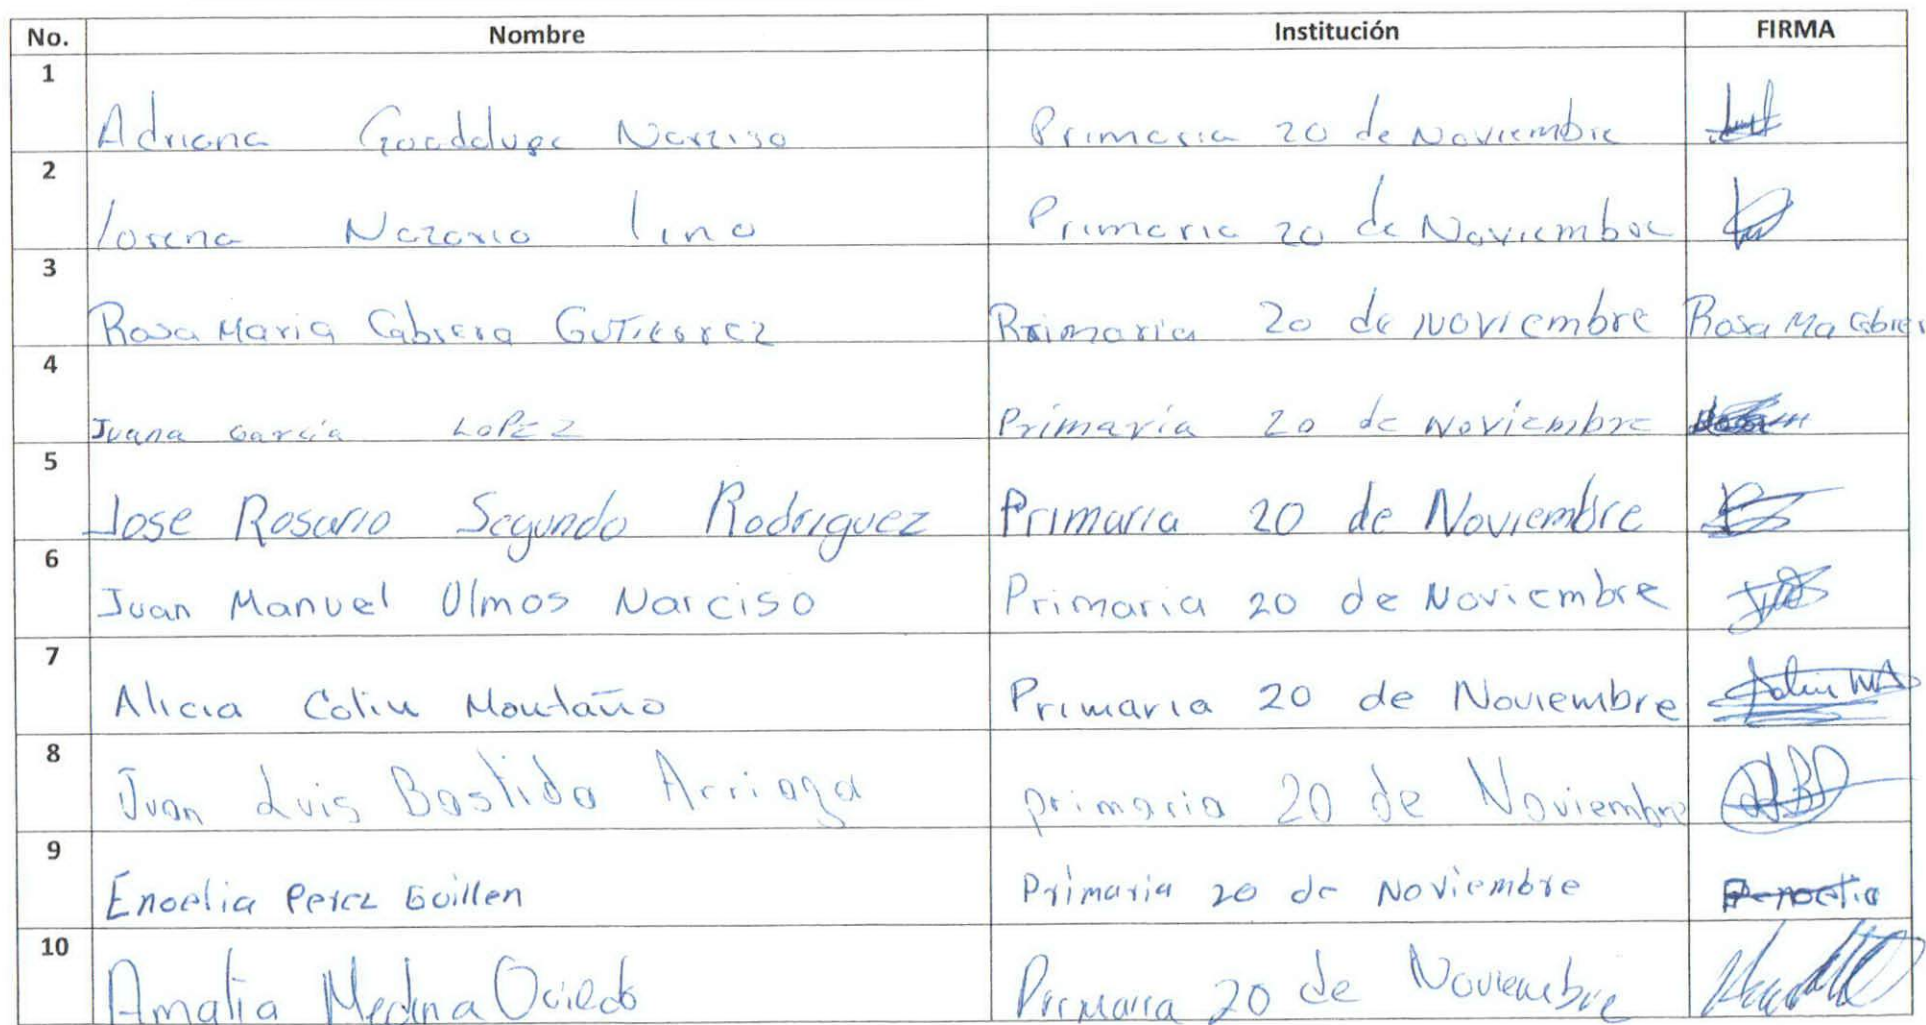 No. Nombre Institución FIRMA
1 Adriana Guadalupe Narciso Primaria 20 de Noviembre
2 Lorena Nazario Lino Primaria 20 de Noviembre
3 Rosa Maria Cabrera GUTierrez Primaria 20 de noviembre Rosa Ma Cabrer
4 Juana García LoPEZ Primaria 20 de Noviembre
5 Jose Rosario Segundo Rodriguez Primaria 20 de Noviembre
6 Juan Manuel Olmos Narciso Primaria 20 de Noviembre
7 Alicia Colin Montaño Primaria 20 de Noviembre
8 Juan Luis Bastida Arriaga primaria 20 de Noviembre
9 Enoelia Perez Guillen Primaria 20 de Noviembre Enoelia
10 Amalia Medina Oviedo Primaria 20 de Noviembre